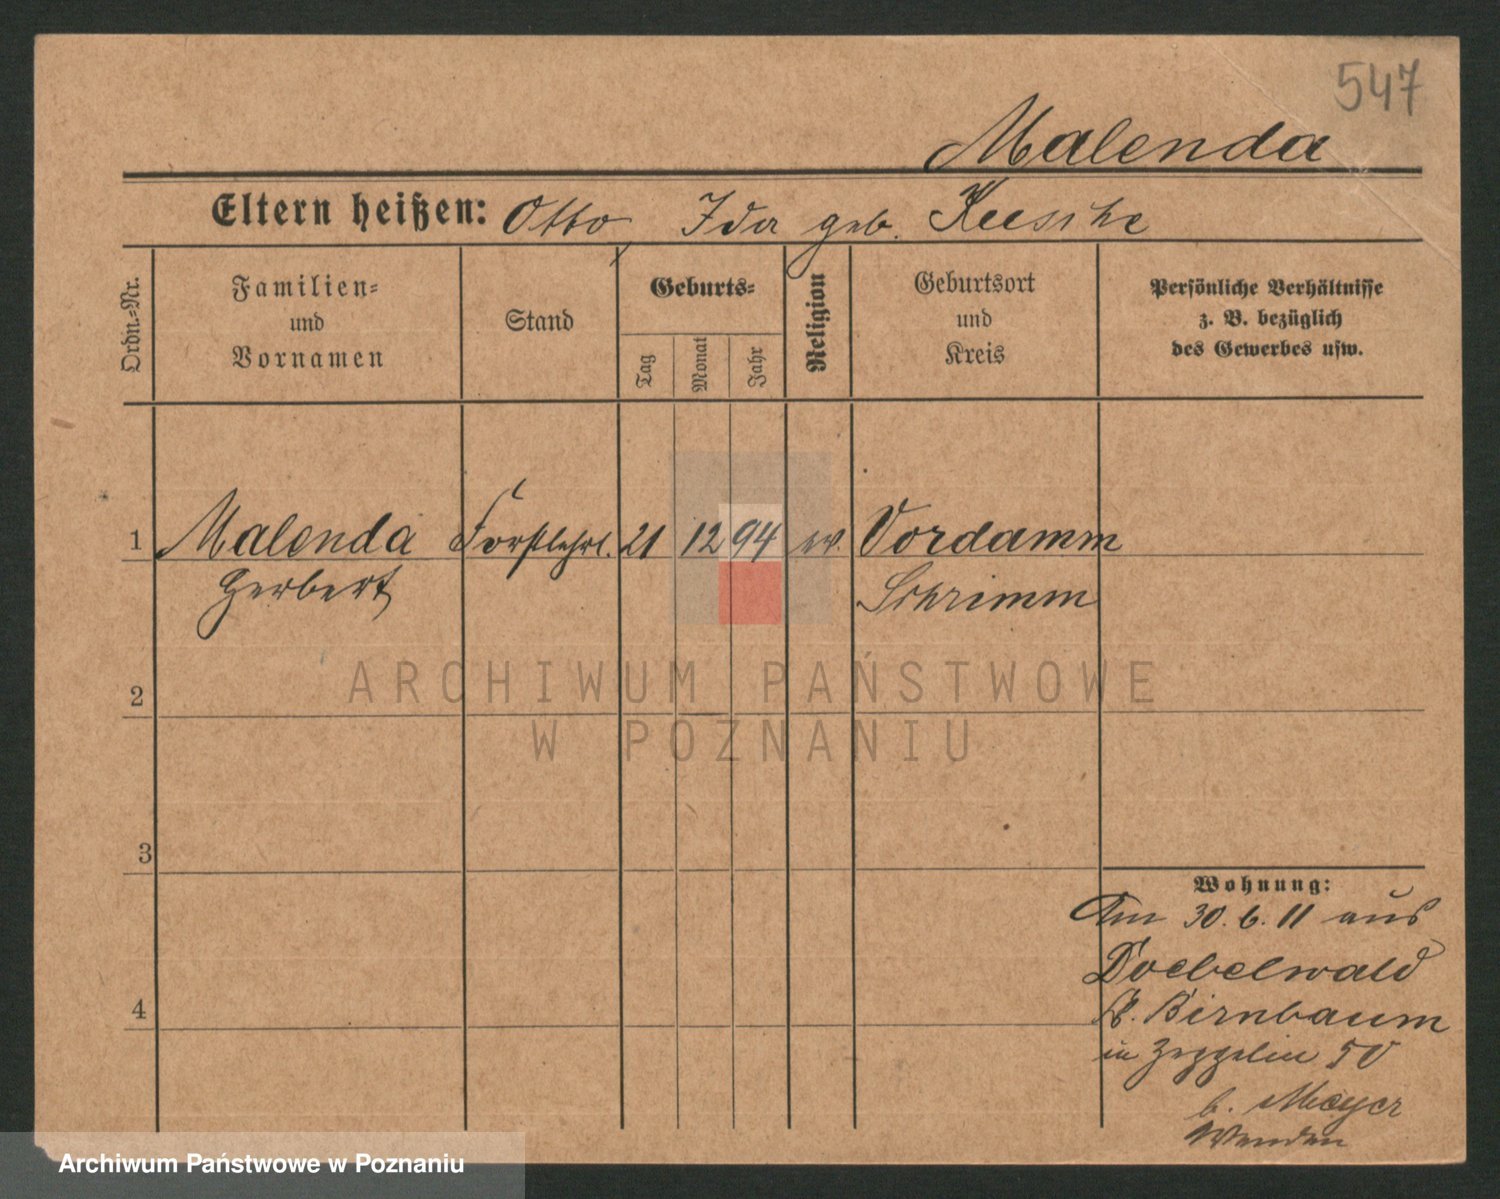 547
Malenda
Eltern heißen: Otto, Ida geb. Kusche
Ordn.-Nr.
Familien-
und
Vornamen
Stand
Geburts-
Tag
Monat
Jahr
Religion
Geburtsort
und
Kreis
Persönliche Verhältnisse
z. B. bezüglich
des Gewerbes usw.
1 Malenda Forstlehrl. 21 12 94 ev. Vordamm
Herbert Schrimm
ARCHIWUM PAŃSTWOWE
W POZNANIU
2
3
4
Wohnung:
Am 30.6.11 aus
Doebelwald
K. Birnbaum
in Zeppelin 50
b. Meyer
Archiwum Państwowe w Poznaniu